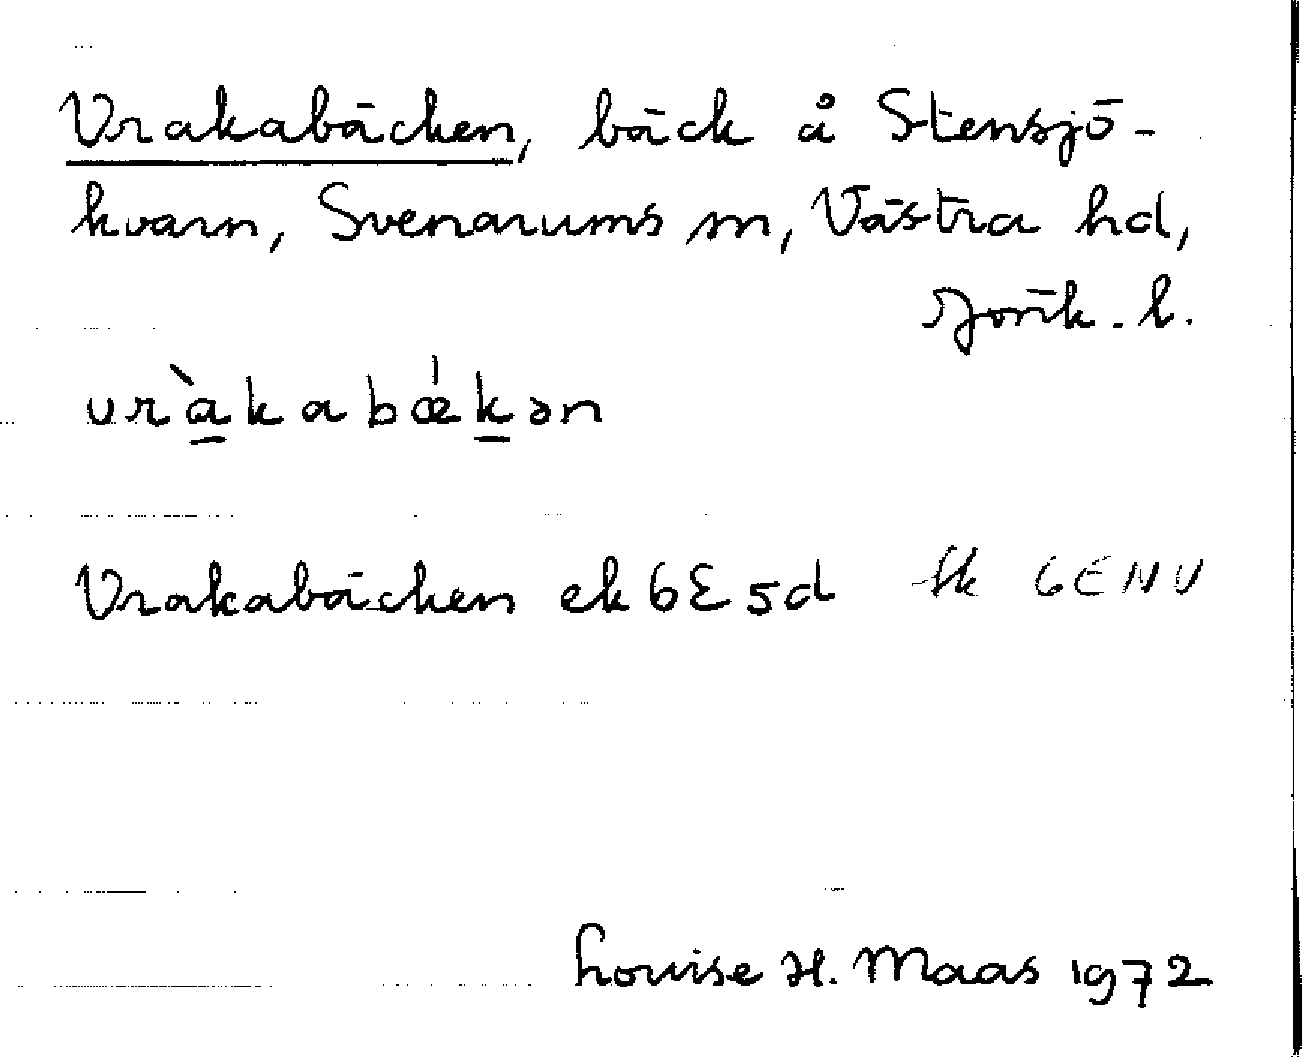 Vrakabäcken, bäck å Stensjö-
kvarn, Svenarums sn, Västra hd,
Jönk. l.
vràkabǽkən
Vrakabäcken ek 6E 5d fk 6E NV
Louise H. Maas 1972